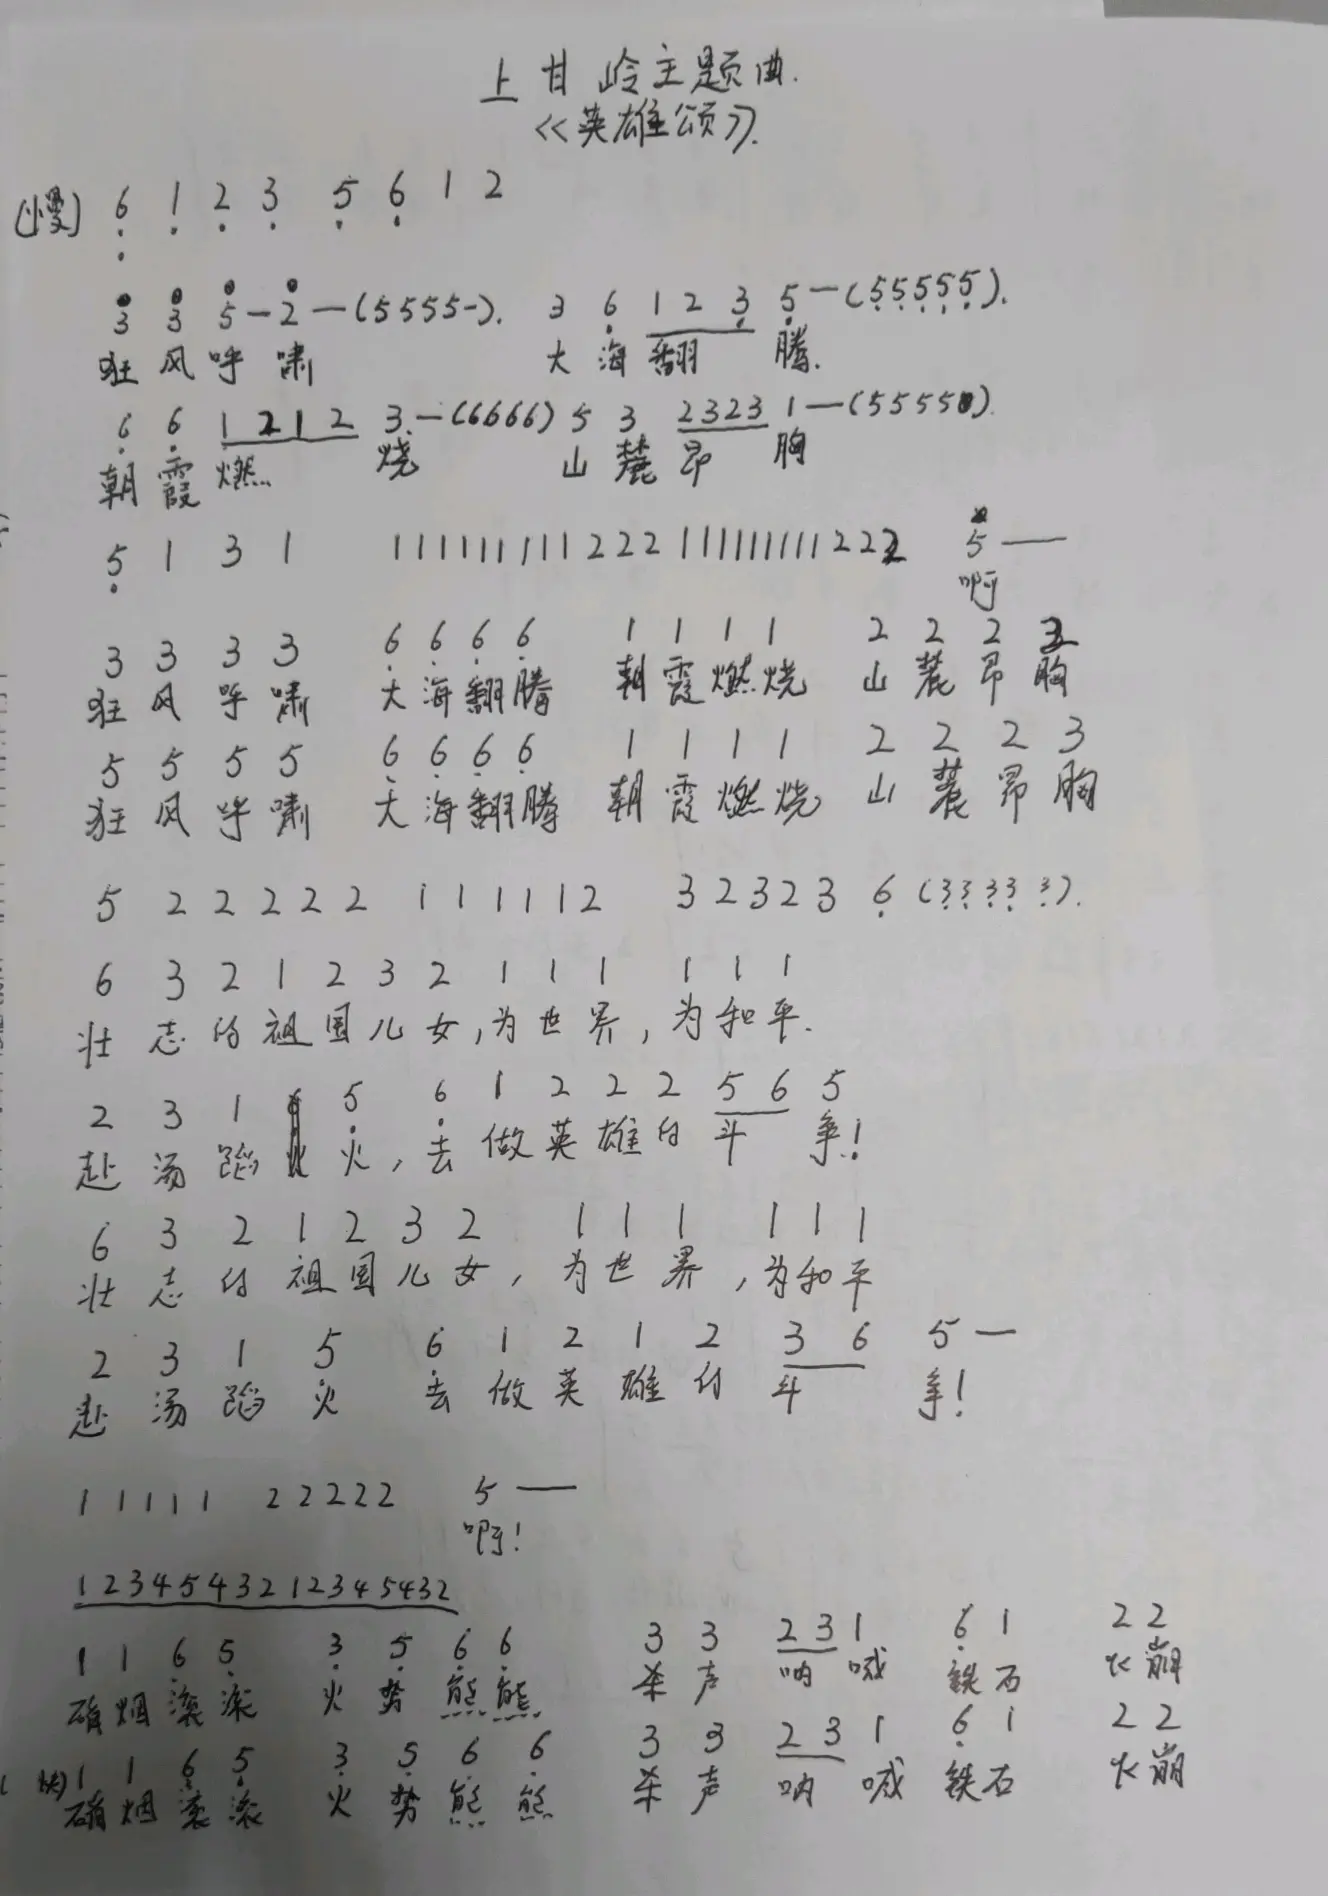 上甘岭主题曲.
《英雄颂》.
(慢) 6 1 2 3 5 6 1 2
3 3 5 - 2 — (5 5 5 5 -). 3 6 1 2 3 5 — (5 5 5 5 5).
狂 风 呼 啸 大 海 翻 腾.
6 6 1 2 1 2 3 — (6 6 6 6) 5 3 2 3 2 3 1 — (5 5 5 5).
朝 霞 燃 烧 山 麓 昂 胸
5 1 3 1 1 1 1 1 1 1 1 1 1 2 2 2 1 1 1 1 1 1 1 1 1 2 2 2 5 —
啊
3 3 3 3 6 6 6 6 1 1 1 1 2 2 2 3
狂 风 呼 啸 大 海 翻 腾 朝 霞 燃 烧 山 麓 昂 胸
5 5 5 5 6 6 6 6 1 1 1 1 2 2 2 3
狂 风 呼 啸 大 海 翻 腾 朝 霞 燃 烧 山 麓 昂 胸
5 2 2 2 2 2 1 1 1 1 1 2 3 2 3 2 3 6 (3 3 3 3 3).
6 3 2 1 2 3 2 1 1 1 1 1 1
壮 志 的 祖 国 儿 女, 为 世 界, 为 和 平.
2 3 1 5 6 1 2 2 2 5 6 5
赴 汤 蹈 火, 去 做 英 雄 的 斗 争!
6 3 2 1 2 3 2 1 1 1 1 1 1
壮 志 的 祖 国 儿 女, 为 世 界, 为 和 平
2 3 1 5 6 1 2 1 2 3 6 5 —
赴 汤 蹈 火 去 做 英 雄 的 斗 争!
1 1 1 1 1 2 2 2 2 2 5 —
啊!
1 2 3 4 5 4 3 2 1 2 3 4 5 4 3 2
1 1 6 5 3 5 6 6 3 3 2 3 1 6 1 2 2
硝 烟 滚 滚 火 势 熊 熊 杀 声 呐 喊 铁 石 火 崩
(快) 1 1 6 5 3 5 6 6 3 3 2 3 1 6 1 2 2
硝 烟 滚 滚 火 势 熊 熊 杀 声 呐 喊 铁 石 火 崩